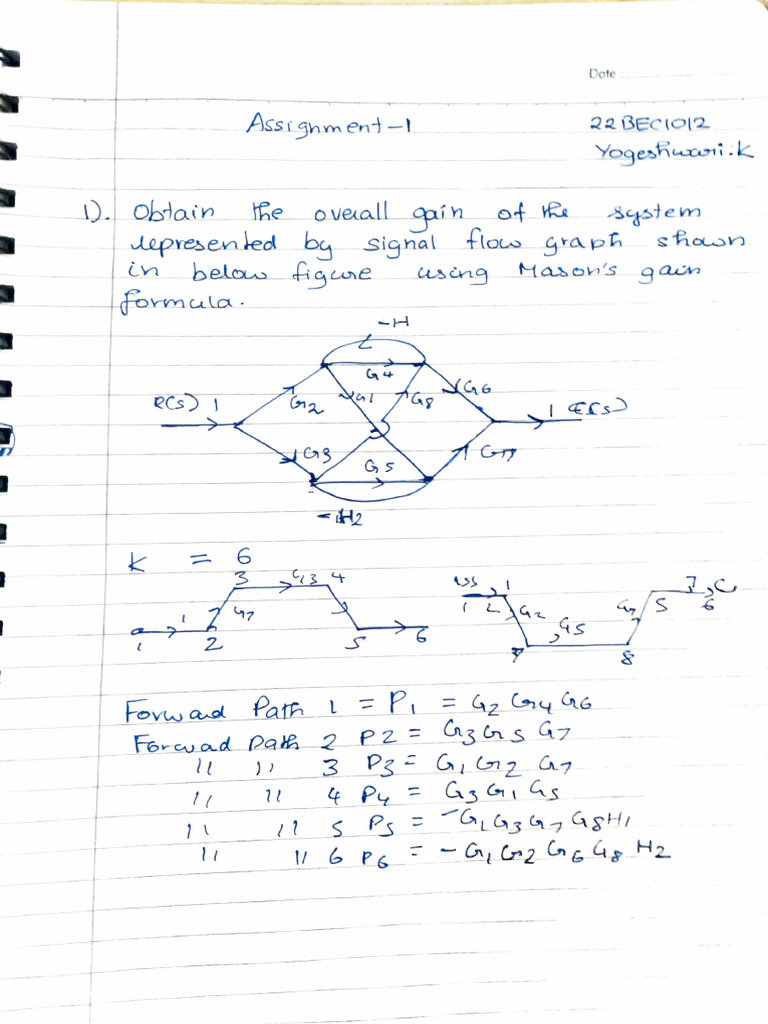 Date :
Assignment-1
22BEC1012
Yogeshwari.K
1). Obtain the overall gain of the system
represented by signal flow graph shown
in below figure using Mason's gain
formula.
-H
G4
R(s) 1
G2
G1
G8
G6
1 C(s)
G3
G5
G7
-H2
K = 6
3
4
1
G7
1
2
5
6
1
1
2
G2
G5
7
8
G7
5
6
C
Forward Path 1 = P1 = G2 G4 G6
Forward path 2 P2 = G3 G5 G7
" " 3 P3 = G1 G2 G7
" " 4 P4 = G3 G1 G8
" " 5 P5 = -G1 G3 G7 G8 H1
" " 6 P6 = - G1 G2 G6 G8 H2